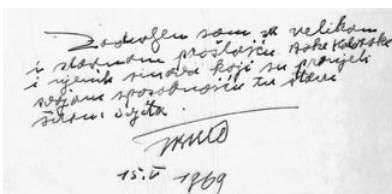 Zadivljen sam velikom
i slavnom prošlošću Boke Kotorske
i njenih sinova koji su pronijeli
svojom sposobnošću tu slavu
širom svijeta.
Tito
15.V 1969